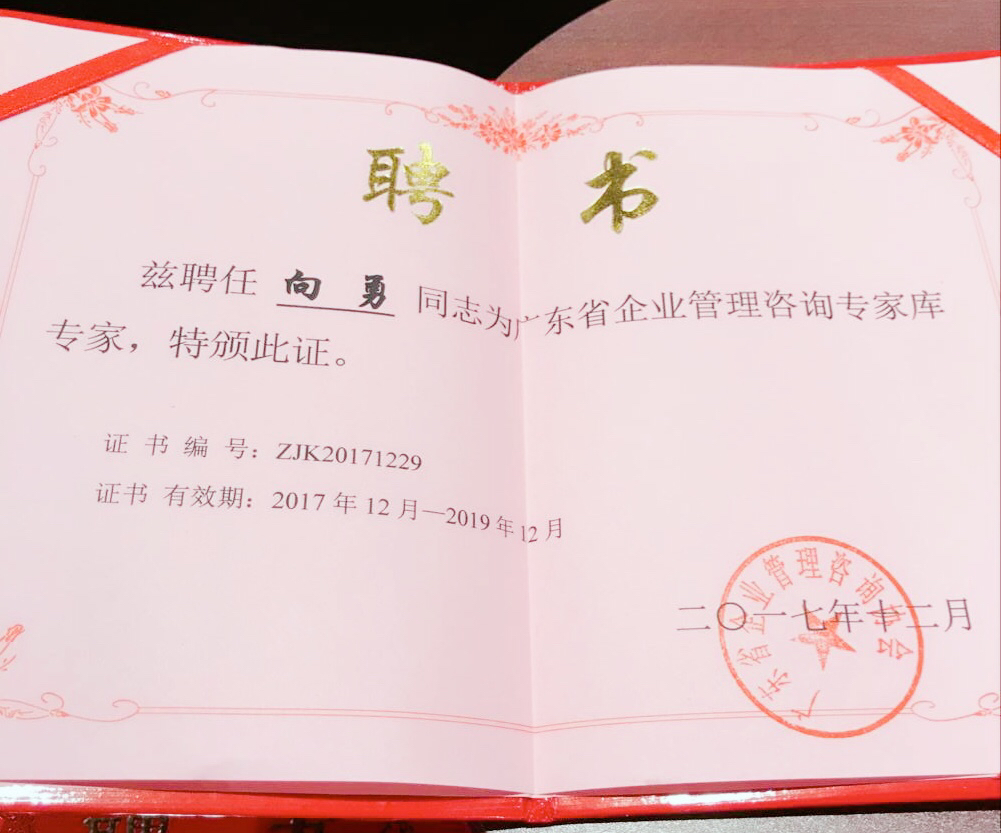 聘 书
兹聘任 向 勇 同志为广东省企业管理咨询专家库
专家，特颁此证。
证 书 编 号：ZJK20171229
证书 有效期：2017 年 12 月—2019 年 12 月
二〇一七年十二月
广东省企业管理咨询协会